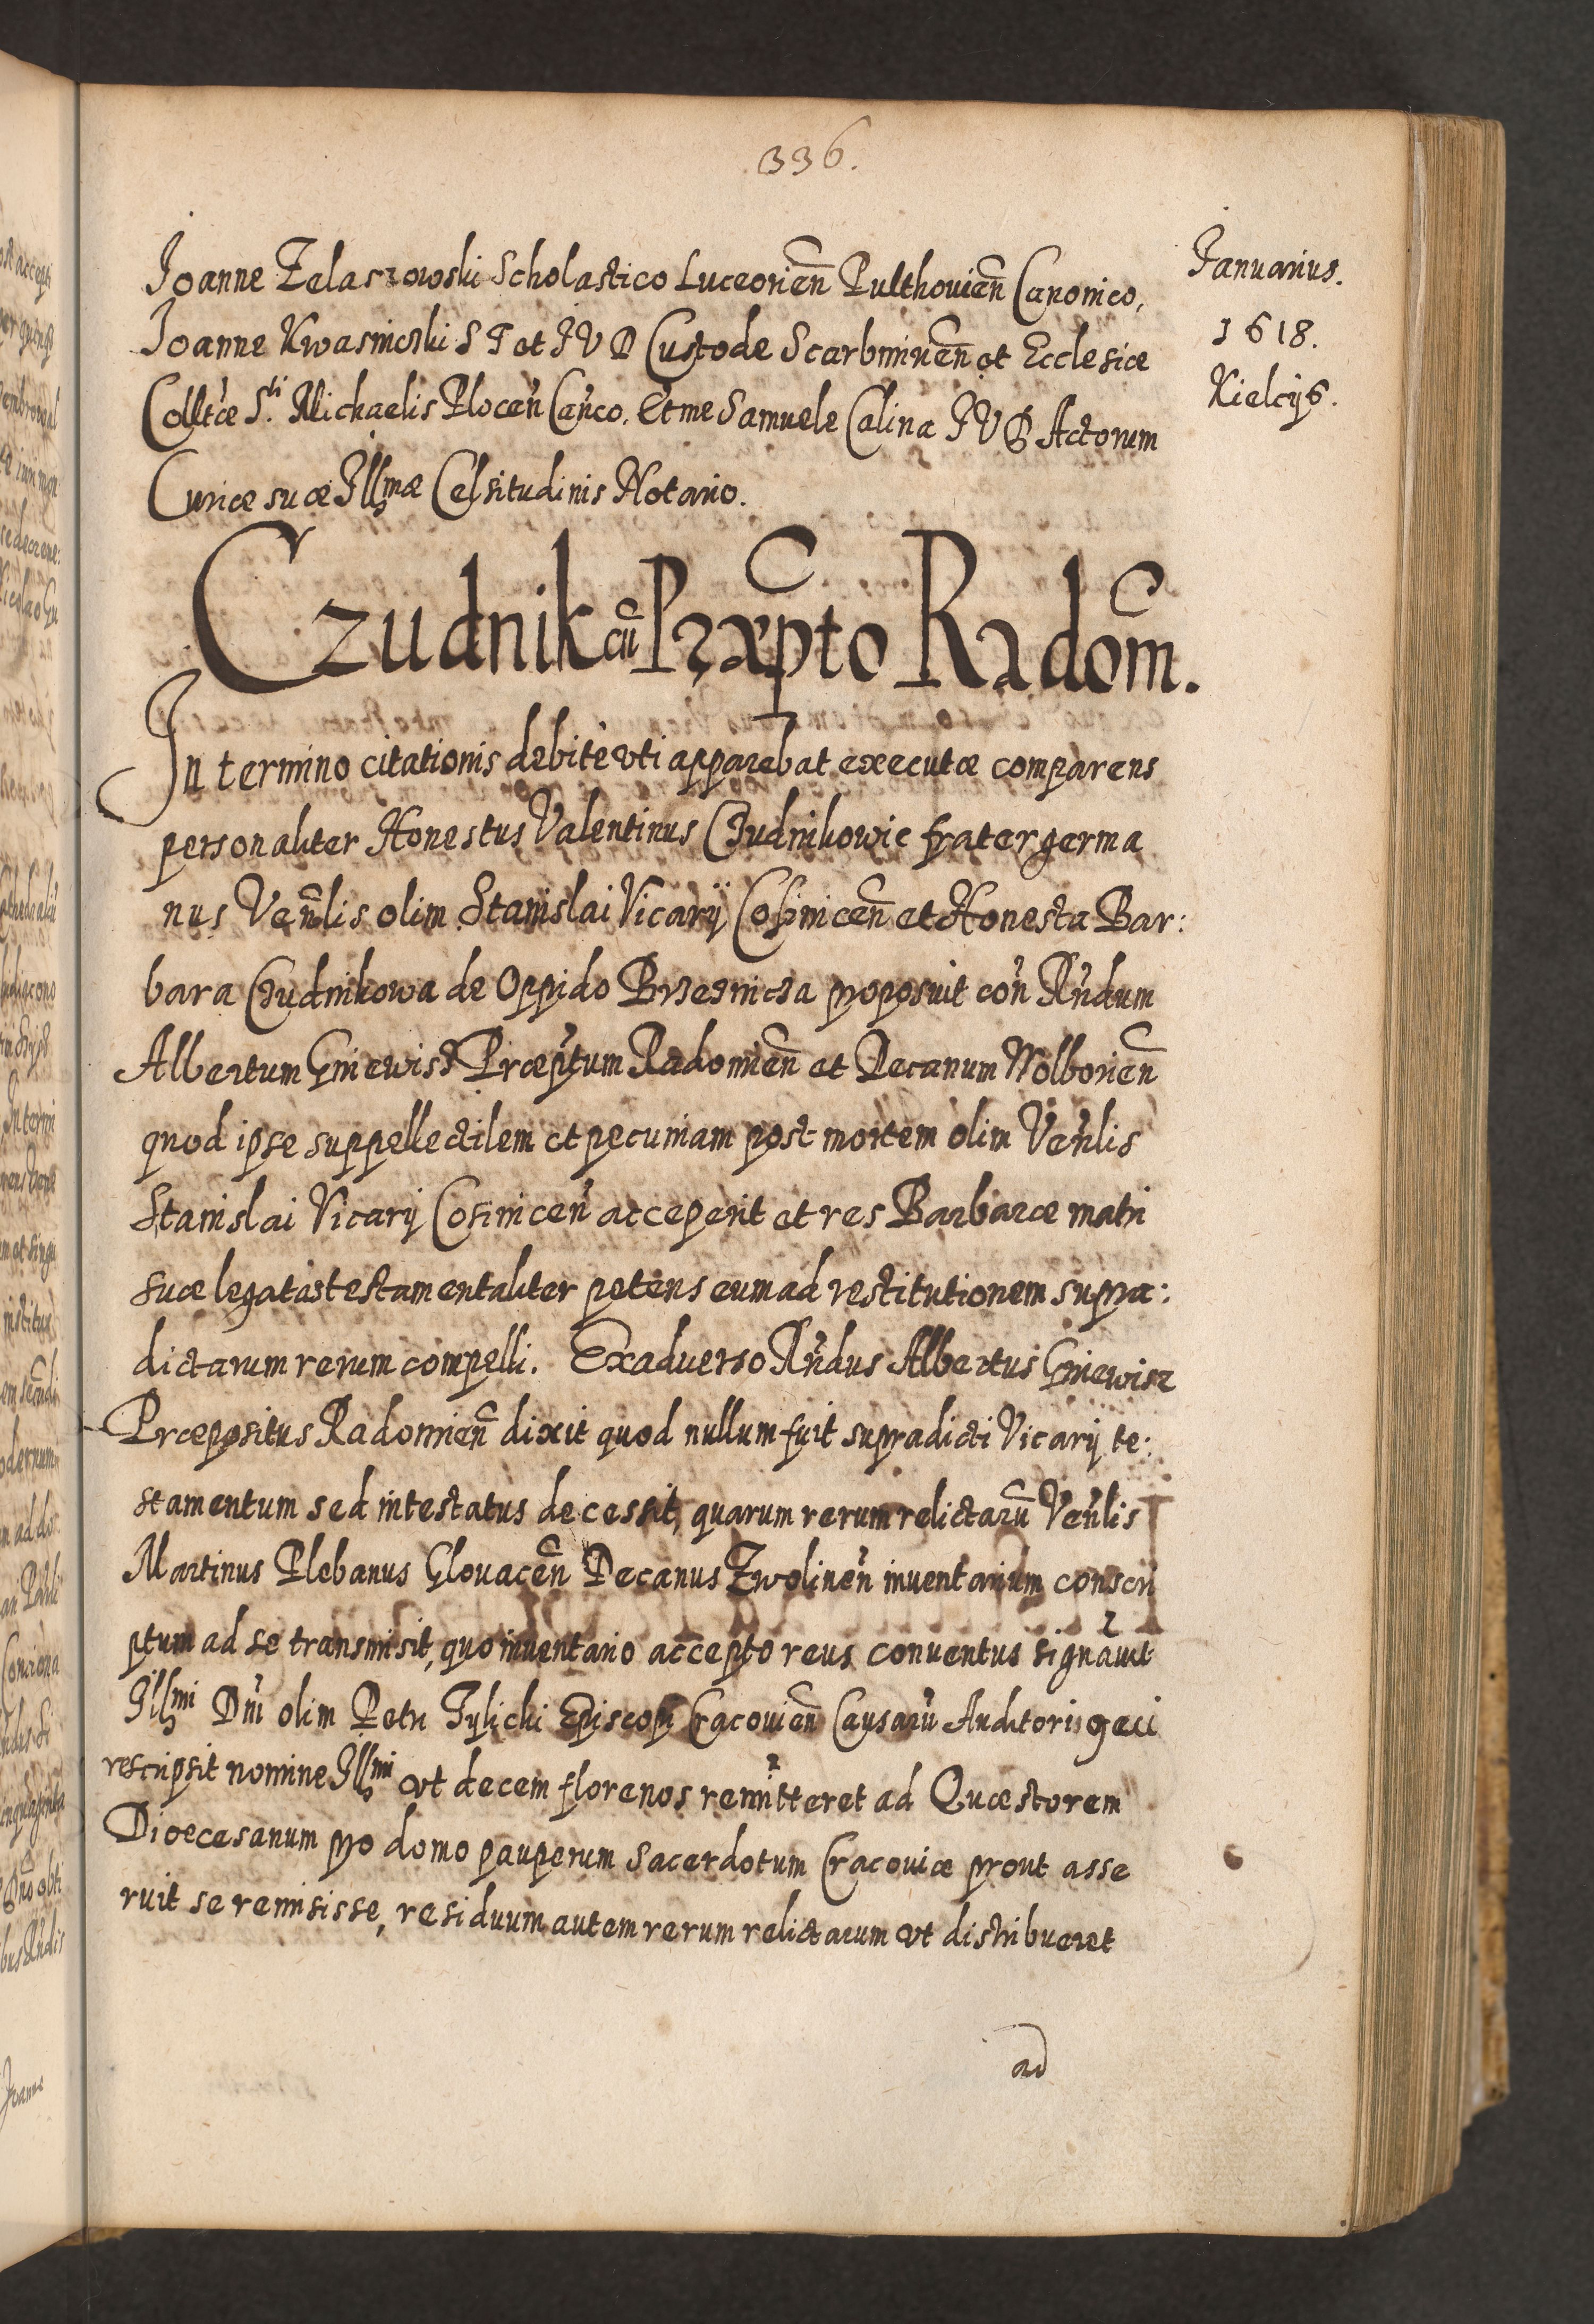 336.
Januarius.
1618.
Kielcijs.
Joanne Zelaszowski Scholastico Luceorień Pulthouień Canonico,
Joanne Kwasnicski S T et J V D Custode Scarbmireń et Ecclesiæ
Colltæ S.ti Michaelis Ploceń Cańco. Et me Samuele Calina J V D Actorum
Curiæ suæ Jllmæ Celsitudinis Notario.
Czudnik cū Præpto Radom̄.
In termino citationis debite vti apparebat executæ comparens
personaliter Honestus Valentinus Czudnikowic frater germa
nus Veñlis olim Stanislai Vicarij Cosiniceñ et Honesta Bar:
bara Czudnikowa de Oppido Brzeznicza proposuit coñ Rñdum
Albertum Gniewisz Præptum Radomieñ et Decanum Wolborieñ
quod ipse suppellectilem et pecuniam post mortem olim Veñlis
Stanislai Vicarij Cosiniceñ acceperit et res Barbaræ matri
suæ legatas testamentaliter petens eum ad restitutionem supra:
dictarum rerum compelli. Exaduerso Rñdus Albertus Gniewisz
Præpositus Radomieñ dixit quod nullum fuit supradicti Vicarij te:
stamentum sed intestatus decessit, quarum rerum relictarū Veñlis
Martinus Plebanus Glouaceñ Decanus Zwolineñ inuentarium conscri
ptum ad se transmisit, quo inuentario accepto reus conuentus signauit
Jllmi Dñi olim Petri Tylicki Episcopi Cracouieñ Causarū Auditori
rescripsit nomine Jllmi vt decem florenos remitteret ad Quæstorem
Diœcesanum pro domo pauperum Sacerdotum Cracouiæ prout asse
ruit se remisisse, residuum autem rerum relictarum vt distribueret
ad